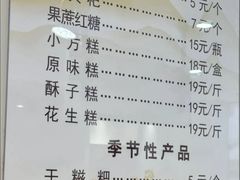 粑……………5元/个
果蔗红糖…………7元/个
小方糕…………15元/瓶
原味糕…………18元/盒
酥子糕…………19元/斤
花生糕…………19元/斤
季节性产品
干糍粑…………5元/个